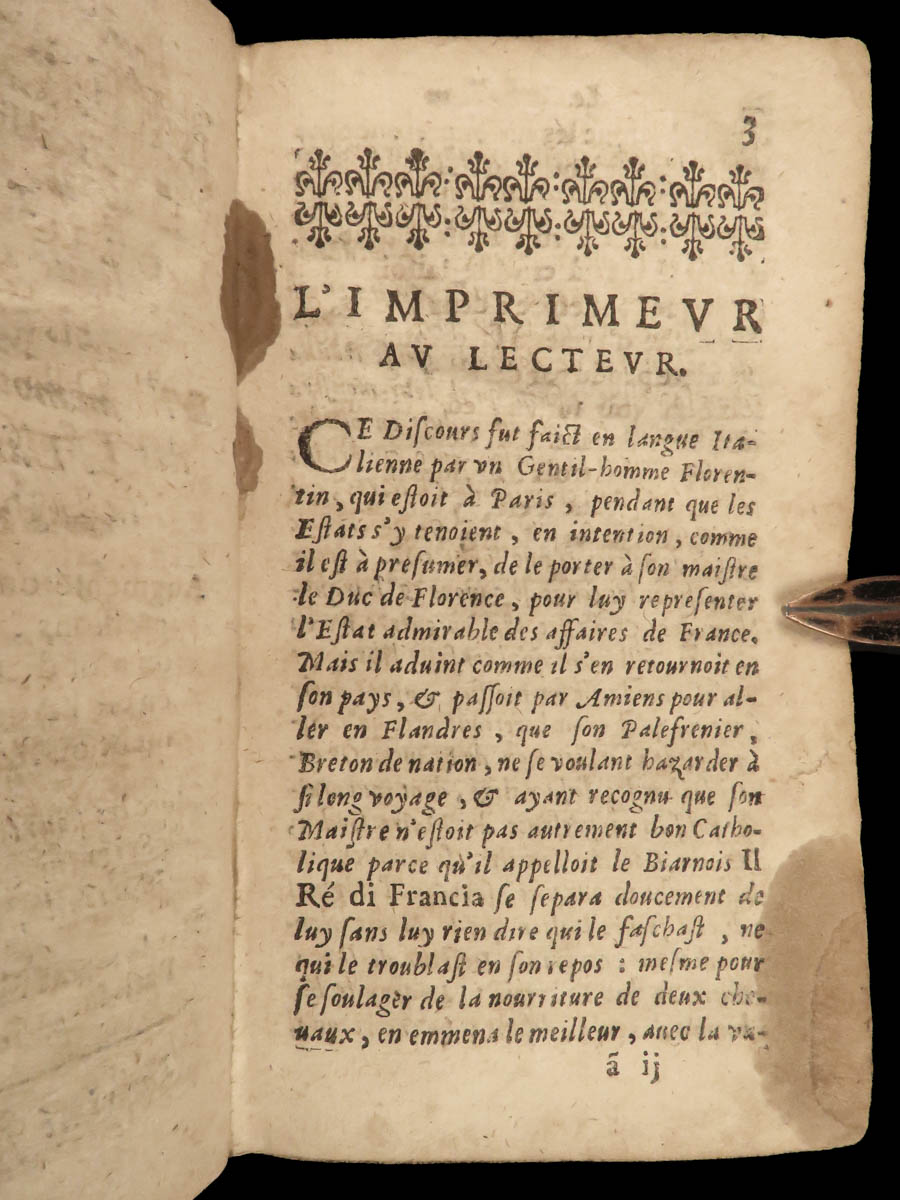 3
L'IMPRIMEVR
AV LECTEVR.
CE Diſcours fut faict en langue Ita-
lienne par vn Gentil-homme Floren-
tin, qui eſtoit à Paris, pendant que les
Eſtats s'y tenoient, en intention, comme
il eſt à preſumer, de le porter à ſon maiſtre
le Duc de Florence, pour luy repreſenter
l'Eſtat admirable des affaires de France.
Mais il aduint comme il s'en retournoit en
ſon pays, & paſſoit par Amiens pour al-
ler en Flandres, que ſon Palefrenier,
Breton de nation, ne ſe voulant hazarder à
ſi long voyage, & ayant recognu que ſon
Maiſtre n'eſtoit pas autrement bon Catho-
lique parce qu'il appelloit le Biarnois Il
Ré di Francia ſe ſepara doucement de
luy ſans luy rien dire qui le faſchaſt, ne
qui le troublaſt en ſon repos : meſme pour
ſe ſoulager de la nourriture de deux che-
uaux, en emmena le meilleur, auec la va-
ã ij